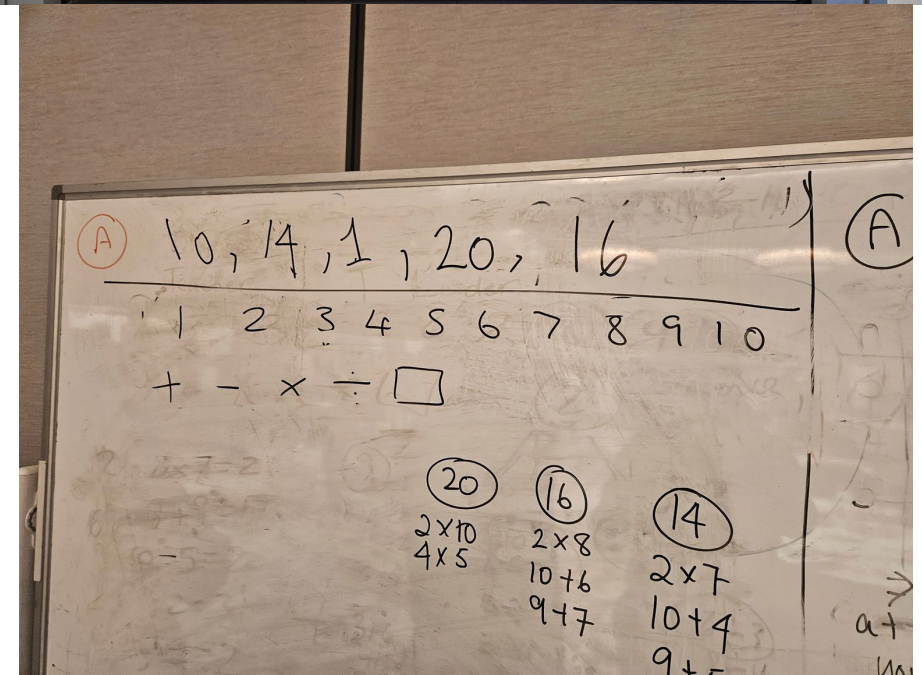 A 10, 14, 1, 20, 16
1 2 3 4 5 6 7 8 9 10
+ - × ÷ □
20
2×10
4×5
16
2×8
10+6
9+7
14
2×7
10+4
A
a+